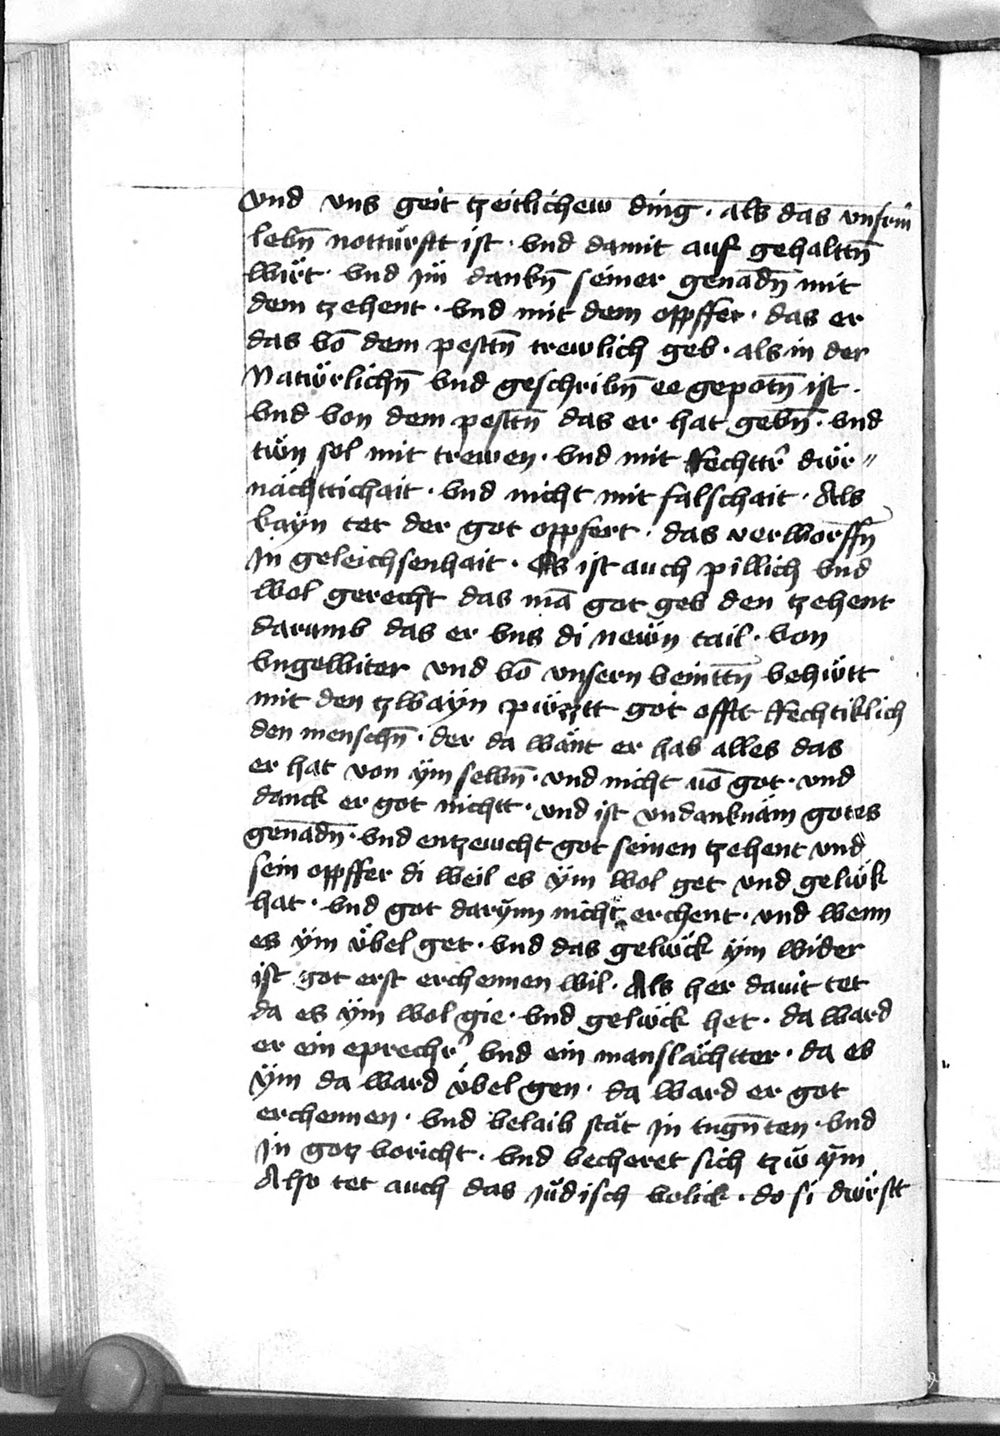 vnd vns geit tzeitlichew ding · als das vnsrm̄
lebn̄ notturftt ist · vnd damit auf gehalttn̄
wirt · vnd im dankn̄ seiner genadn̄ mit
dem tzehent · vnd mit dem oppffer · das er
das vō dem pesttn̄ trewlich geb · als in der
Natürlichn̄ vnd geschribn̄ ee gepotn̄ ist ·
vnd von dem pesttn̄ das er hat gebn̄ · vnd
tün sol mit trewen · vnd mit Rechttr̄ dür〃
nächttichait · vnd nicht mit falschait · Als
kayn tet der got oppfert · das verworffn̄
In geleichsenhait · Es ist auch pillich vnd
wol gerecht das mā got geb den tzehent
darumb das er vns di newn tail · von
vngewiter vnd vō vnsern veinttn̄ behütt
mit den tzwayn püzztt got offtt Rechtiklich
den menschn̄ · der da wänt er hab alles das
er hat von ÿm selbn̄ · vnd nicht vō got · vnd
danck er got nichtt · vnd ist vndanknäm gotes
genadn̄ · vnd entzewcht got seinen tzehent vnd
sein oppffer di weil es ÿm wol get vnd gelük
hat · vnd got darÿnn nicht erchent · vnd wenn
es ÿm übel get · vnd das gelück ÿm wider
ist got erst erchennen wil · Als her dauit tet
da es ÿm wol gie · vnd gelück het · da ward
er ein eprechr̄ vnd ein manslächtter · da es
ÿm da ward übel gen · da ward er got
erchennen · vnd belaib stät in tugn̄ten · vnd
In gotz voricht · vnd becheret sich tzü ÿm
Also tet auch das Jüdisch volick · do si dürftt